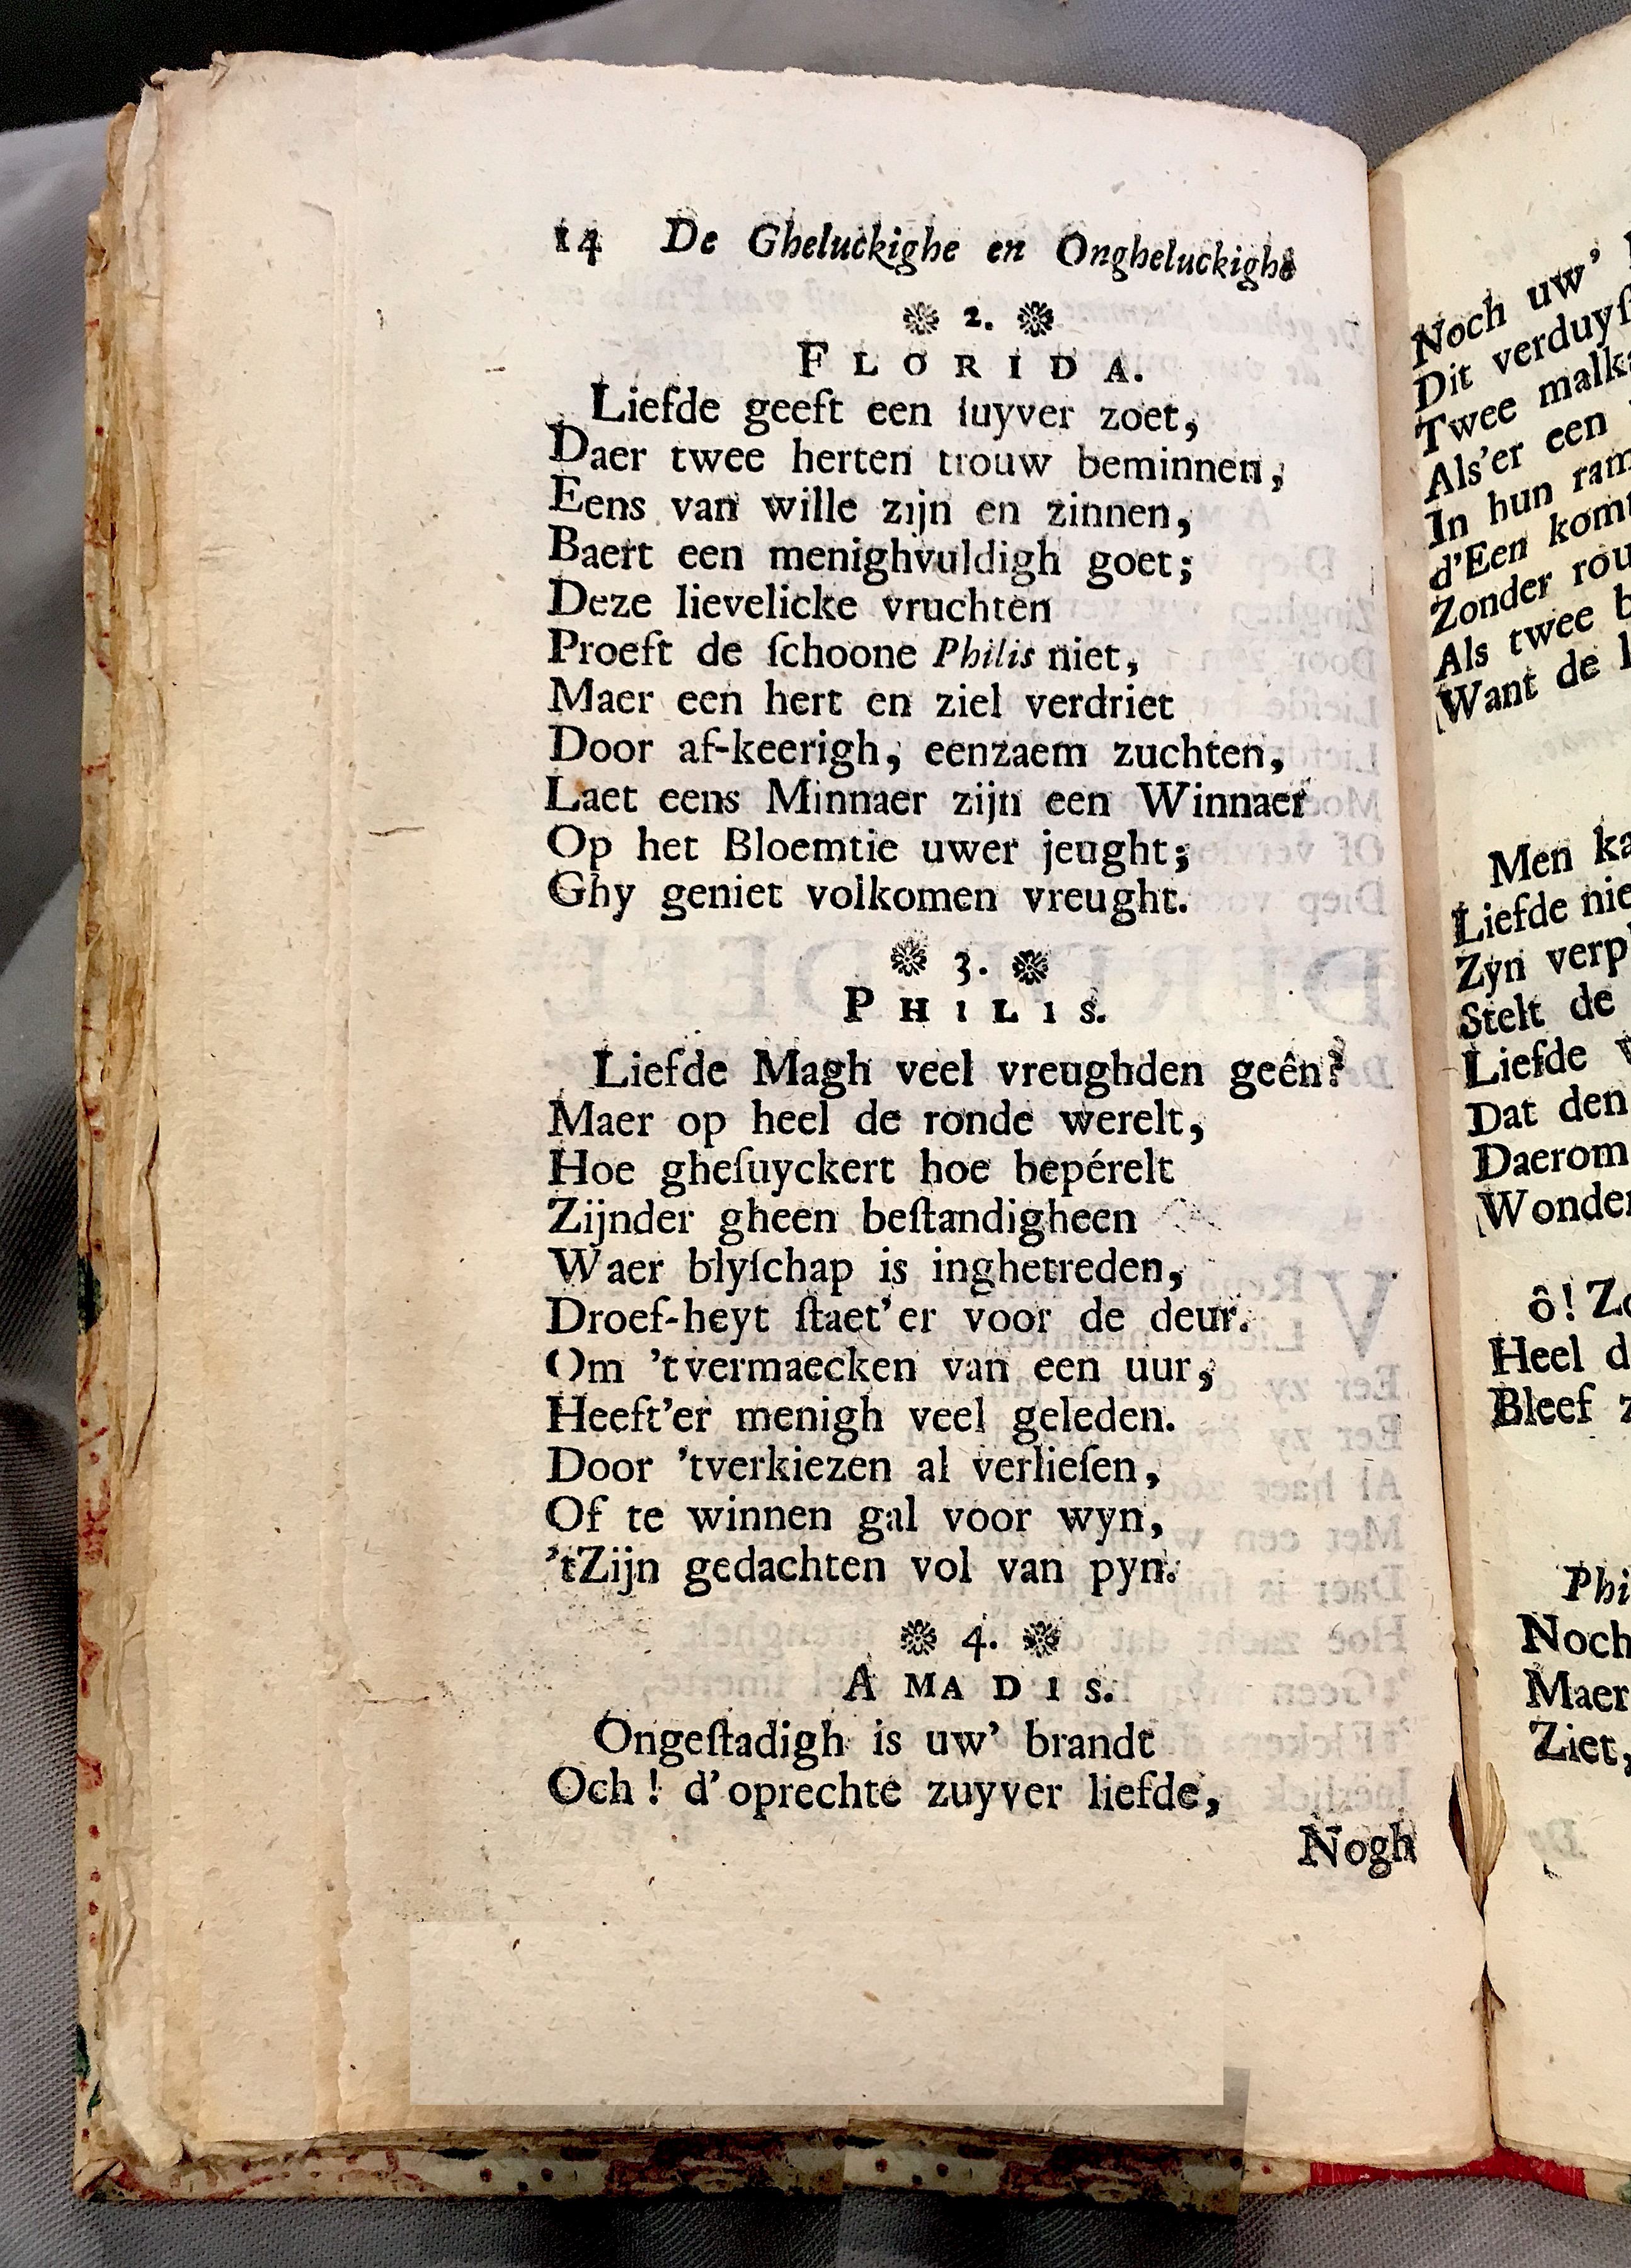 14 De Gheluckighe en Ongheluckighe
2.
FLORIDA.
Liefde geeft een ſuyver zoet,
Daer twee herten trouw beminnen,
Eens van wille zijn en zinnen,
Baert een menighvuldigh goet;
Deze lievelicke vruchten
Proeft de ſchoone Philis niet,
Maer een hert en ziel verdriet
Door af-keerigh, eenzaem zuchten,
Laet eens Minnaer zijn een Winnaer
Op het Bloemtie uwer jeught;
Ghy geniet volkomen vreught.
3.
PHILIS.
Liefde Magh veel vreughden geên?
Maer op heel de ronde werelt,
Hoe gheſuyckert hoe bepérelt
Zijnder gheen beſtandigheen
Waer blyſchap is inghetreden,
Droef-heyt ſtaet'er voor de deur.
Om 'tvermaecken van een uur,
Heeft'er menigh veel geleden.
Door 'tverkiezen al verlieſen,
Of te winnen gal voor wyn,
'tZijn gedachten vol van pyn.
4.
AMADIS.
Ongeſtadigh is uw' brandt
Och! d'oprechte zuyver liefde,
Nogh
Noch uw'
Dit
Twee
Als'er een
In hun
d'Een
Zonder
Als twee
Want de
Men
Liefde
Zyn
Stelt de
Liefde
Dat den
Daerom
ô!
Heel
Bleef
Noch
Maer
Ziet,